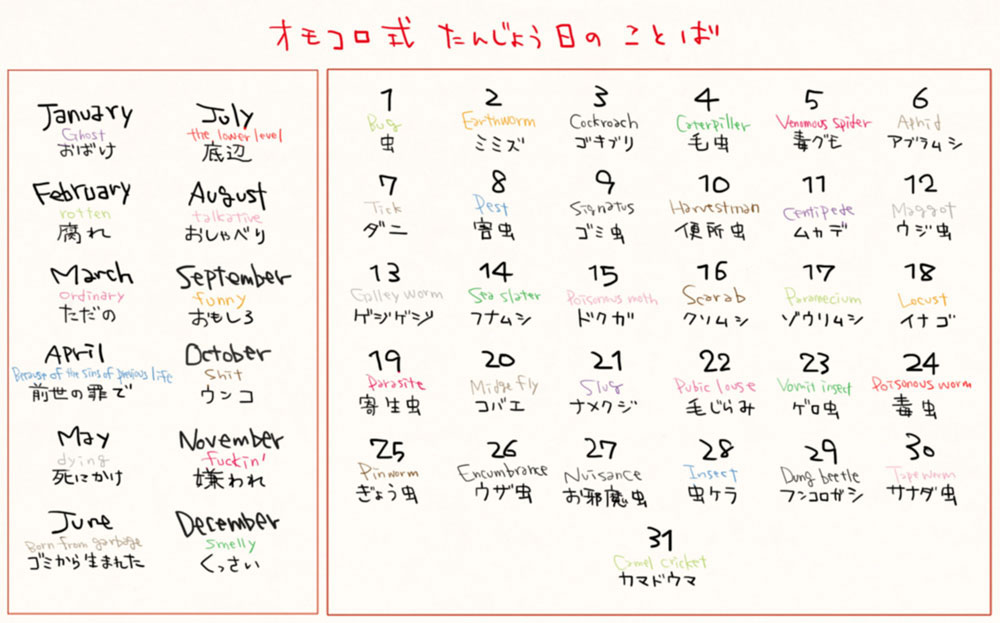 オモコロ式 たんじょう日のことば
January
Ghost
おばけ
February
rotten
腐れ
March
ordinary
ただの
April
Because of the sins of previous life
前世の罪で
May
dying
死にかけ
June
Born from garbage
ゴミから生まれた
July
the lower level
底辺
August
talkative
おしゃべり
September
funny
おもしろ
October
Shit
ウンコ
November
fuckin'
嫌われ
December
smelly
くっさい
1
Bug
虫
2
Earthworm
ミミズ
3
Cockroach
ゴキブリ
4
Caterpiller
毛虫
5
Venomous spider
毒グモ
6
Aphid
アブラムシ
7
Tick
ダニ
8
Pest
害虫
9
Signatus
ゴミ虫
10
Harvestman
便所虫
11
Centipede
ムカデ
12
Maggot
ウジ虫
13
Galley worm
ゲジゲジ
14
Sea slater
フナムシ
15
Poisonous moth
ドクガ
16
Scarab
クソムシ
17
Paramecium
ゾウリムシ
18
Locust
イナゴ
19
Parasite
寄生虫
20
Midge fly
コバエ
21
Slug
ナメクジ
22
Pubic louse
毛じらみ
23
Vomit insect
ゲロ虫
24
Poisonous worm
毒虫
25
Pinworm
ぎょう虫
26
Encumbrance
ウザ虫
27
Nuisance
お邪魔虫
28
Insect
虫ケラ
29
Dung beetle
フンコロガシ
30
Tape worm
サナダ虫
31
Camel cricket
カマドウマ